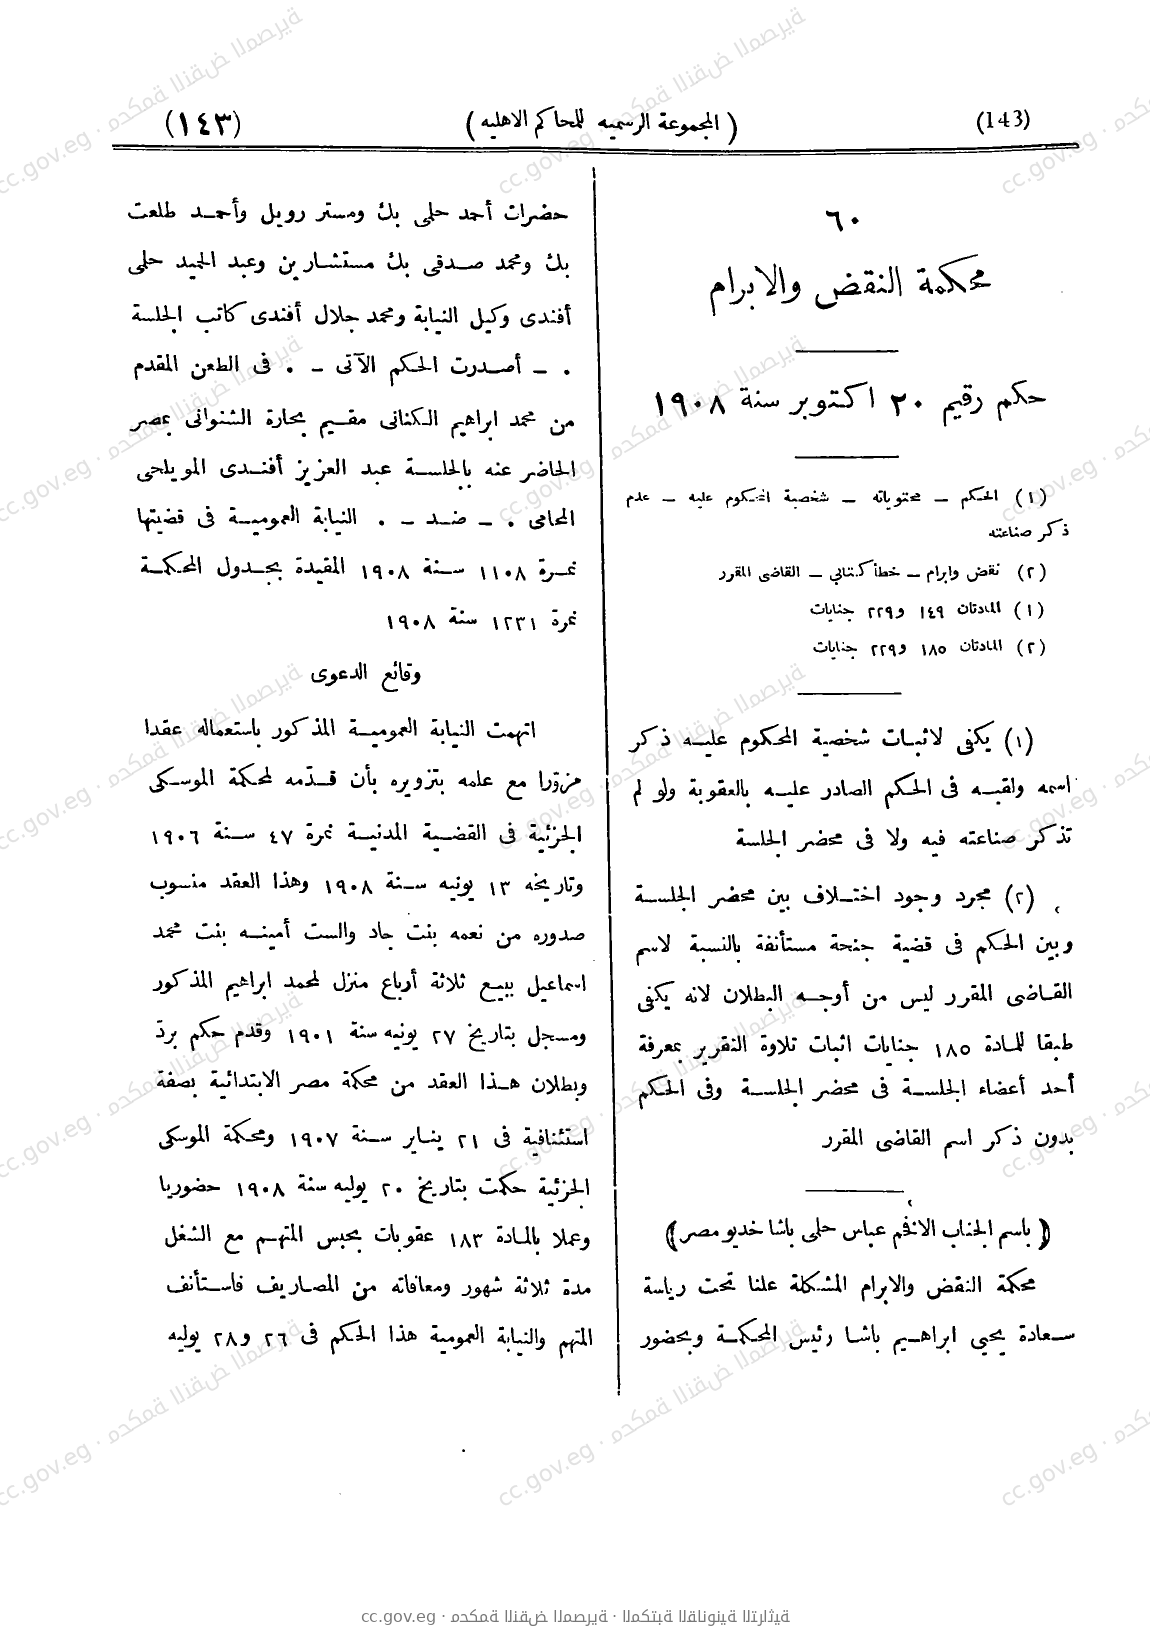 (143)
( المجموعة الرسميه للمحاكم الاهليه )
(١٤٣)
٦٠
محكمة النقض والابرام
حكم رقيم ٢٠ اكتوبر سنة ١٩٠٨
(١) الحكم – محتوياته – شخصية المحكوم عليه – عدم
ذكر صناعته
(٢) نقض وابرام – خطأ كتابي – القاضى المقرر
(١) المادتان ١٤٩ و٢٢٩ جنايات
(٢) المادتان ١٨٥ و٢٢٩ جنايات
(١) يكفى لاثبات شخصية المحكوم عليه ذكر
اسمه ولقبه فى الحكم الصادر عليه بالعقوبة ولو لم
تذكر صناعته فيه ولا فى محضر الجلسة
(٢) مجرد وجود اختلاف بين محضر الجلسة
وبين الحكم فى قضية جنحة مستأنفة بالنسبة لاسم
القاضى المقرر ليس من أوجه البطلان لانه يكفى
طبقا للمادة ١٨٥ جنايات اثبات تلاوة التقرير بمعرفة
أحد أعضاء الجلسة فى محضر الجلسة وفى الحكم
بدون ذكر اسم القاضى المقرر
( باسم الجناب الافخم عباس حلمى باشا خديو مصر )
محكمة النقض والابرام المشكلة علنا تحت رياسة
سعادة يحيي ابراهيم باشا رئيس المحكمة وبحضور
حضرات أحمد حلمى بك ومستر رويل وأحمد طلعت
بك ومحمد صدقى بك مستشارين وعبد الحميد حلمى
أفندى وكيل النيابة ومحمد جلال أفندى كاتب الجلسة
. – أصدرت الحكم الآتى – . فى الطعن المقدم
من محمد ابراهيم الكنانى مقيم بحارة الشنوانى بمصر
الحاضر عنه بالجلسة عبد العزيز أفندى المويلحى
المحامى . – ضد – . النيابة العمومية فى قضيتها
نمرة ١١٠٨ سنة ١٩٠٨ المقيدة بجدول المحكمة
نمرة ١٢٣١ سنة ١٩٠٨
وقائع الدعوى
اتهمت النيابة العمومية المذكور باستعماله عقدا
مزورا مع علمه بتزويره بأن قدّمه لمحكمة الموسكى
الجزئية فى القضية المدنية نمرة ٤٧ سنة ١٩٠٦
وتاريخه ١٣ يونيه سنة ١٩٠٨ وهذا العقد منسوب
صدوره من نعمه بنت جاد والست أمينه بنت محمد
اسماعيل ببيع ثلاثة أرباع منزل لمحمد ابراهيم المذكور
ومسجل بتاريخ ٢٧ يونيه سنة ١٩٠١ وقدم حكم بردّ
وبطلان هذا العقد من محكمة مصر الابتدائية بصفة
استئنافية فى ٢١ يناير سنة ١٩٠٧ ومحكمة الموسكى
الجزئية حكمت بتاريخ ٢٠ يوليه سنة ١٩٠٨ حضوريا
وعملا بالمادة ١٨٣ عقوبات بحبس المتهم مع الشغل
مدة ثلاثة شهور ومعافاته من المصاريف فاستأنف
المتهم والنيابة العمومية هذا الحكم فى ٢٦ و٢٨ يوليه
cc.gov.eg · محكمة النقض المصرية · المكتبة القانونية التراثية